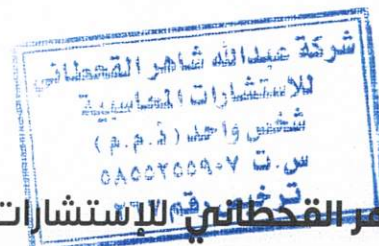 شركة عبدالله شاهر القحطاني
للاستشارات المحاسبية
شخص واحد (ذ.م.م)
س.ت
ترخيص رقم
القحطاني للإستشارات